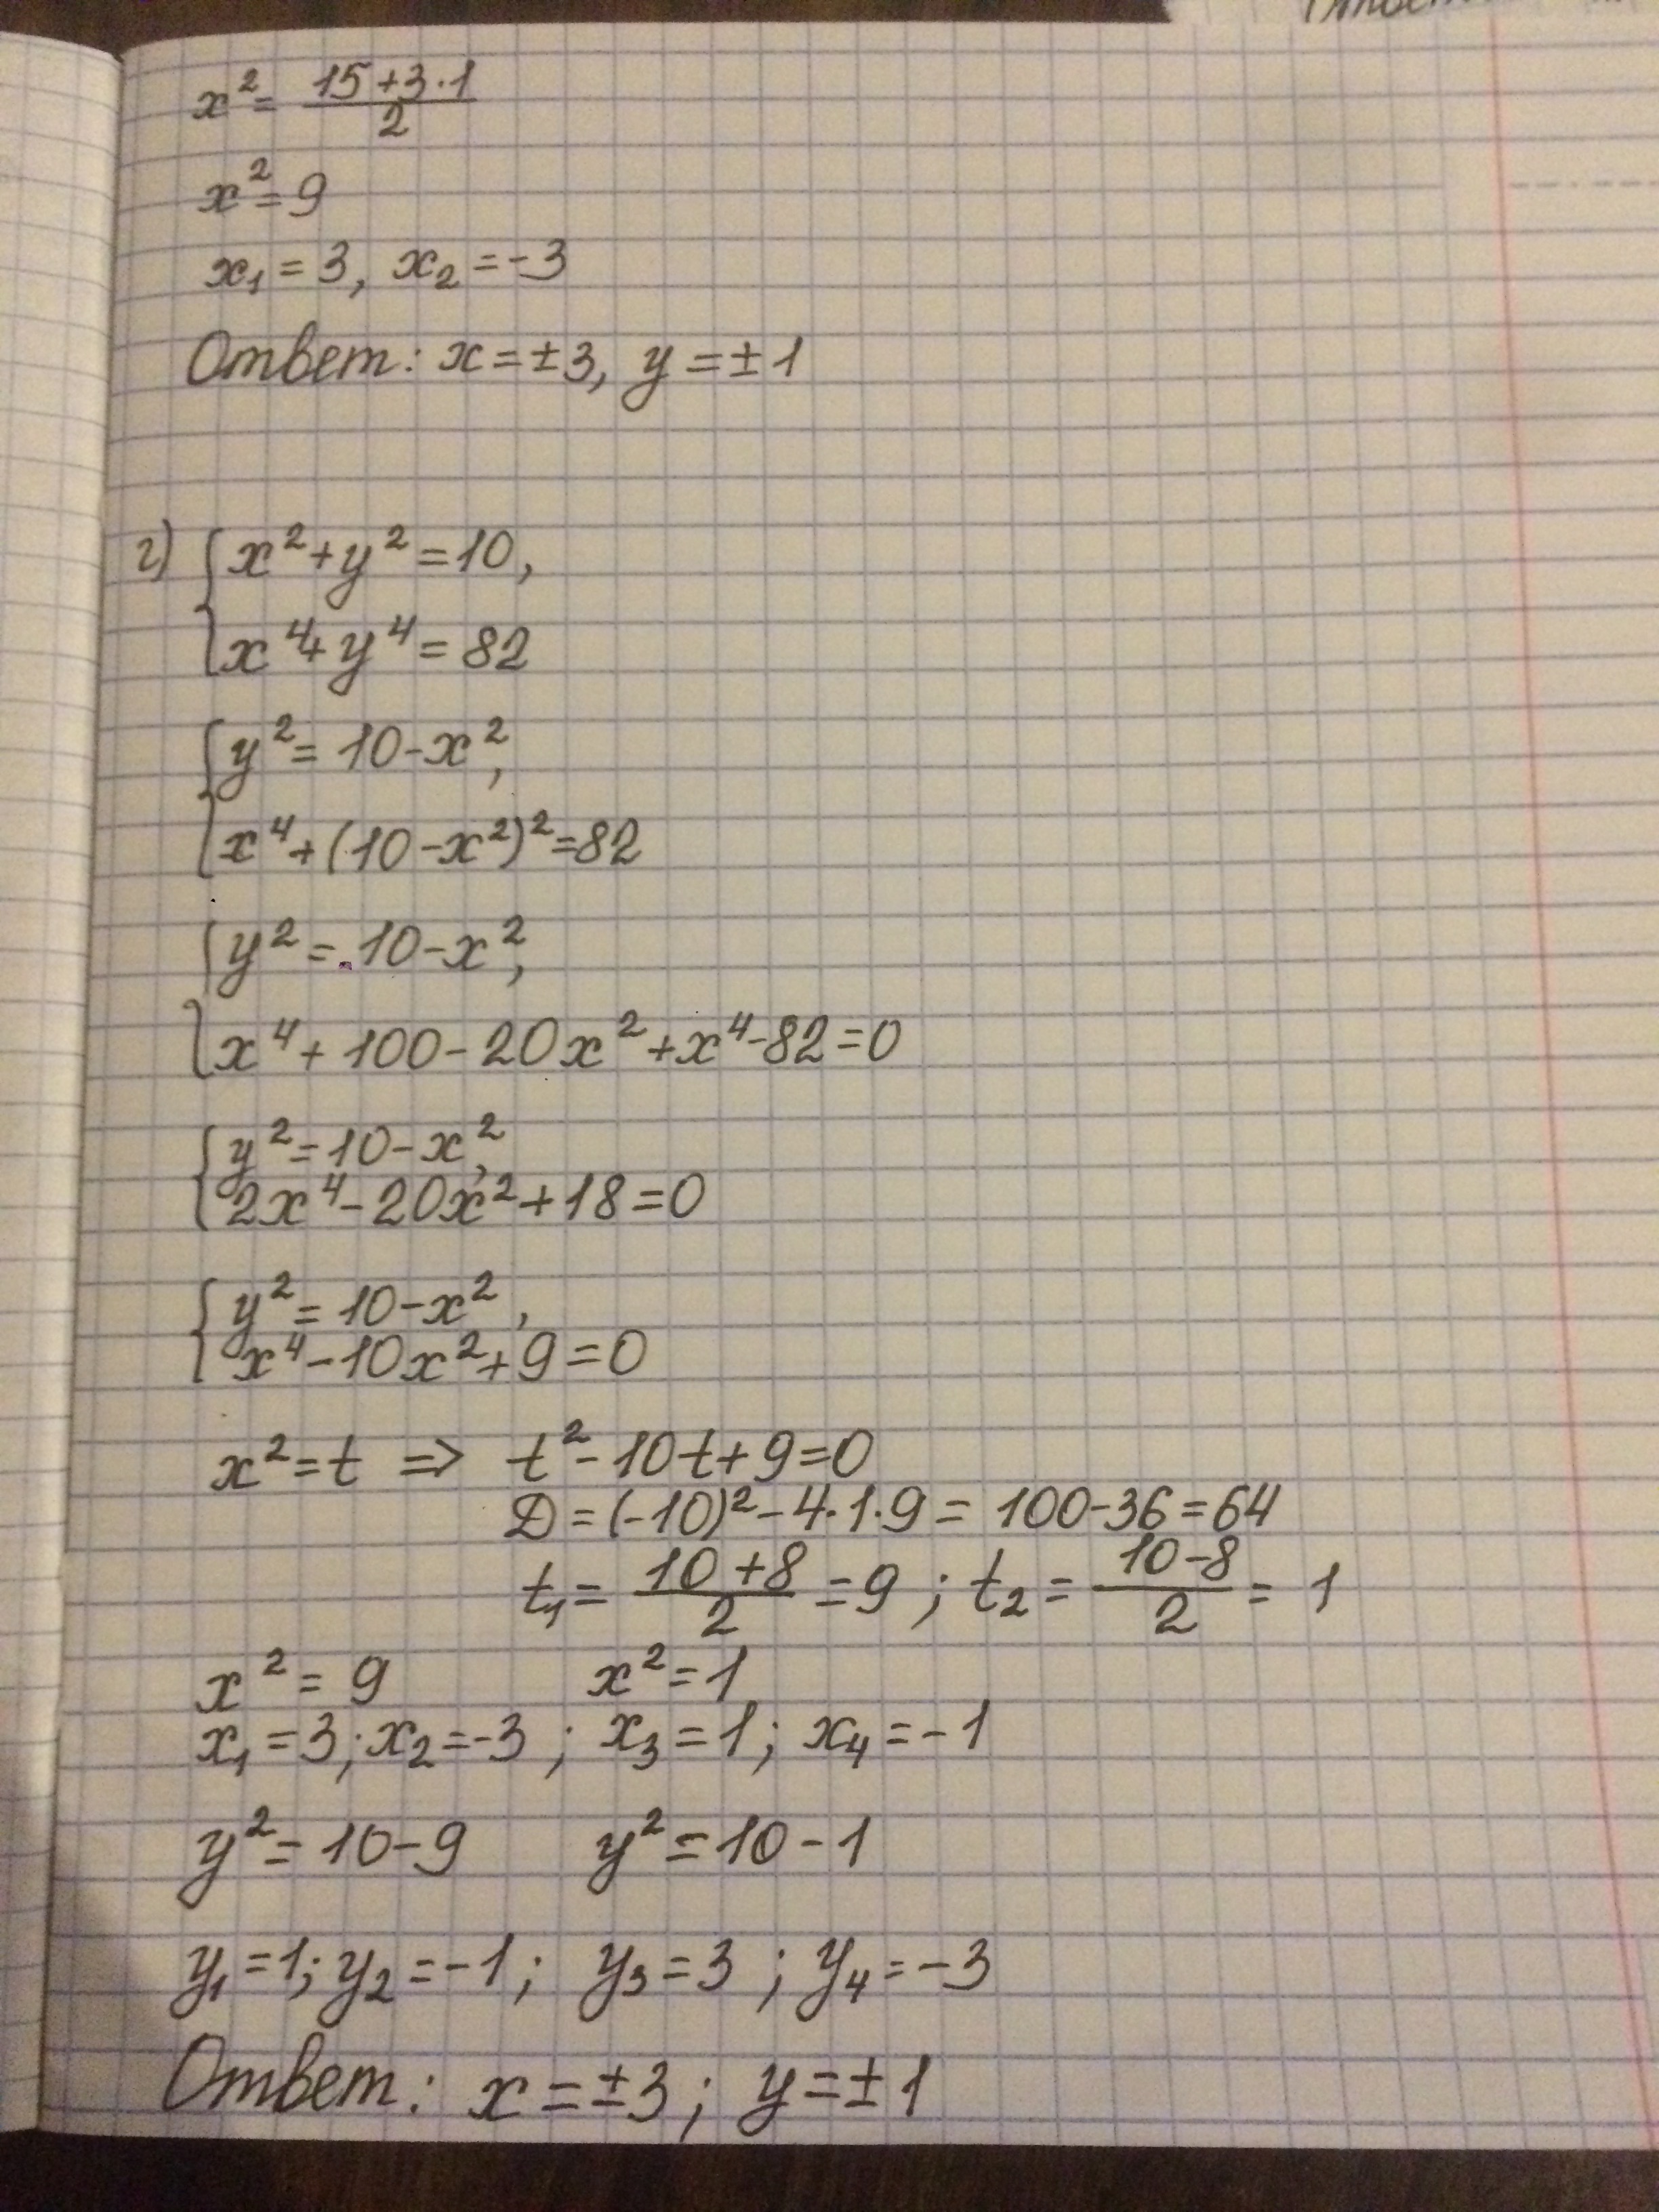 x² = (15+3·1)/2
x² = 9
x₁ = 3, x₂ = -3
Ответ: x = ±3, y = ±1
г) { x² + y² = 10,
x⁴ + y⁴ = 82
{ y² = 10 - x²,
x⁴ + (10 - x²)² = 82
{ y² = 10 - x²,
x⁴ + 100 - 20x² + x⁴ - 82 = 0
{ y² = 10 - x²,
2x⁴ - 20x² + 18 = 0
{ y² = 10 - x²,
x⁴ - 10x² + 9 = 0
x² = t ⇒ t² - 10t + 9 = 0
D = (-10)² - 4·1·9 = 100 - 36 = 64
t₁ = (10+8)/2 = 9 ; t₂ = (10-8)/2 = 1
x² = 9 x² = 1
x₁ = 3; x₂ = -3 ; x₃ = 1; x₄ = -1
y² = 10 - 9 y² = 10 - 1
y₁ = 1; y₂ = -1 ; y₃ = 3 ; y₄ = -3
Ответ: x = ±3; y = ±1